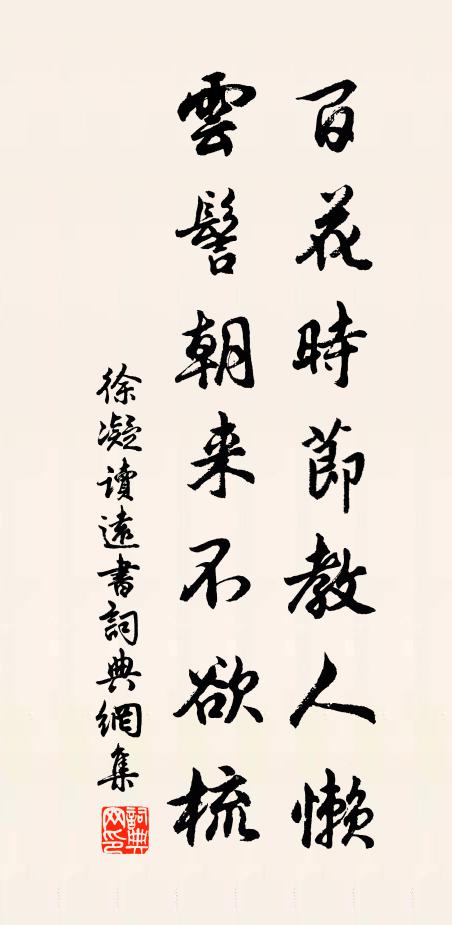 百花時節教人懶
雲髻朝来不欲梳
徐凝讀遠書詞典網集
詞典網印